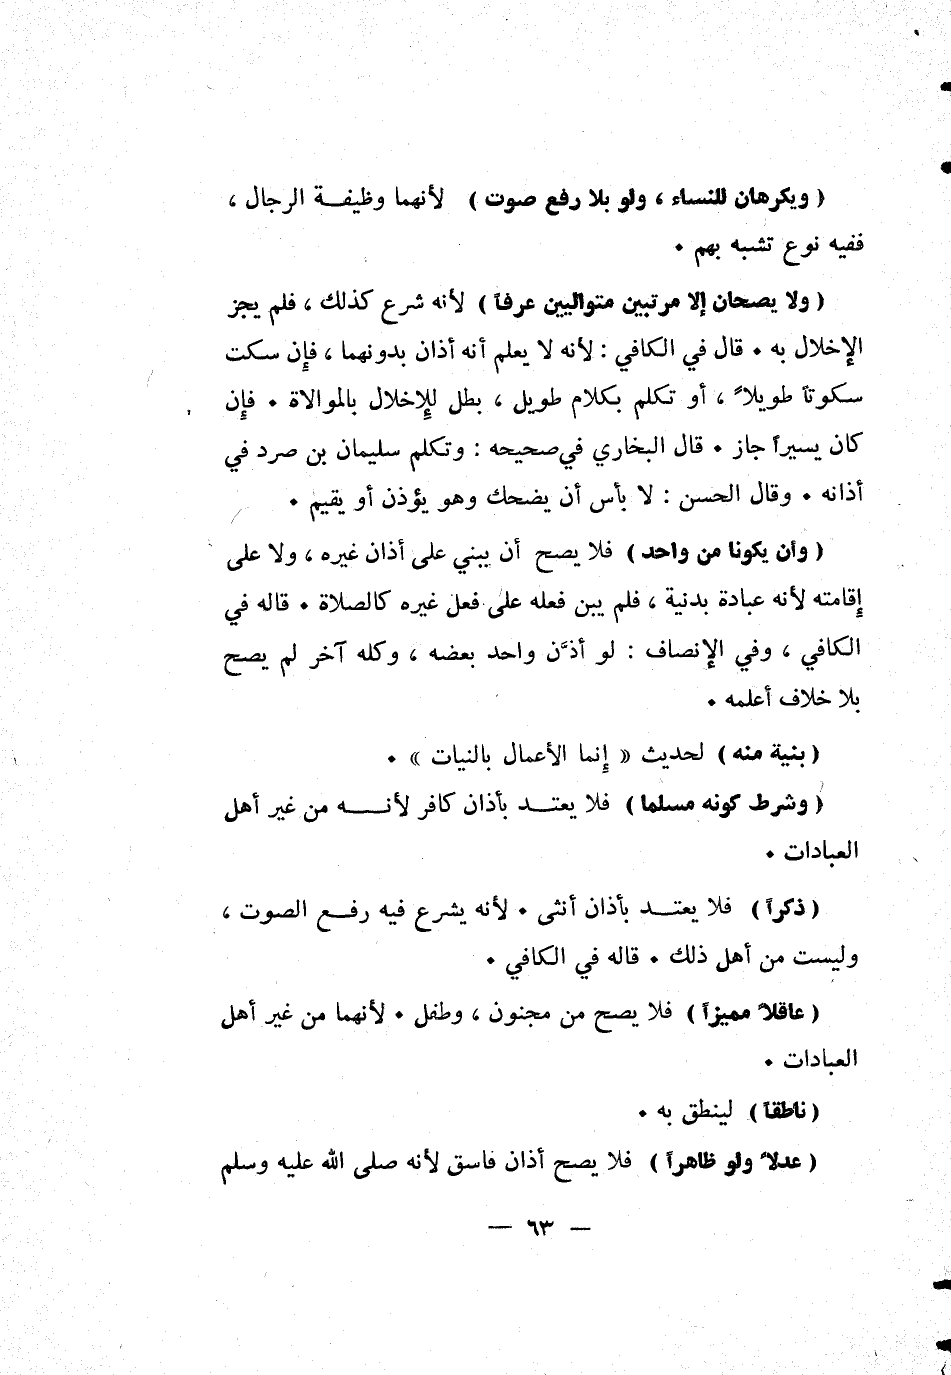 ( ويكرهان للنساء ، ولو بلا رفع صوت ) لأنهما وظيفـــة الرجال ،
ففيه نوع تشبه بهم .
( ولا يصحان إلا مرتبين متواليين عرفاً ) لأنه شرع كذلك ، فلم يجز
الإخلال به . قال في الكافي : لأنه لا يعلم أنه أذان بدونهما ، فإن سكت
سكوتاً طويلاً ، أو تكلم بكلام طويل ، بطل للإخلال بالموالاة . فإن
كان يسيراً جاز . قال البخاري في صحيحه : وتكلم سليمان بن صرد في
أذانه . وقال الحسن : لا بأس أن يضحك وهو يؤذن أو يقيم .
( وأن يكونا من واحد ) فلا يصح أن يبني على أذان غيره ، ولا على
إقامته لأنه عبادة بدنية ، فلم يبن فعله على فعل غيره كالصلاة . قاله في
الكافي ، وفي الإنصاف : لو أذَّن واحد بعضه ، وكله آخر لم يصح
بلا خلاف أعلمه .
( بنية منه ) لحديث « إنما الأعمال بالنيات » .
( وشرط كونه مسلما ) فلا يعتـــد بأذان كافر لأنـــــه من غير أهل
العبادات .
( ذكراً ) فلا يعتـــد بأذان أنثى . لأنه يشرع فيه رفـــع الصوت ،
وليست من أهل ذلك . قاله في الكافي .
( عاقلاً مميزاً ) فلا يصح من مجنون ، وطفل . لأنهما من غير أهل
العبادات .
( ناطقاً ) لينطق به .
( عدلاً ولو ظاهراً ) فلا يصح أذان فاسق لأنه صلى الله عليه وسلم
— ٦٣ —